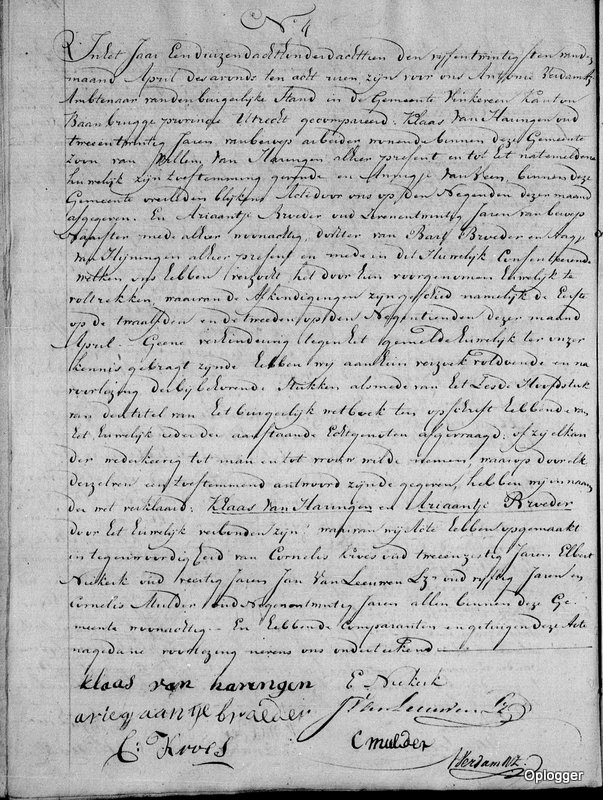 No 4
In het Jaar Eenduizendachthonderdachttien den vyfentwintigsten van de
maand April des avonds ten acht uren zijn voor ons Anthonie Verdam
Ambtenaar van den burgelijke Stand in de Gemeente Vinkeveen Kanton
Baambrugge provincie Utrecht gecompareerd: Klaas Van Haringen oud
tweeentwintig Jaren van beroep arbeider wonende binnen deze Gemeente
zoon van Willem Van Haringen alhier present en tot het natemelden
huwelijk zijn toestemming gevende en Annigje Van Veen, binnen deze
Gemeente overleden blijkens Acte door ons op den Negenden dezer maand
afgegeven. En Ariaantje Broeder oud Zevenentwintig Jaren van beroep
Naaister mede alhier woonachtig, dochter van Bart Broeder en Aagje
Van Hijningen alhier present en mede in dit Huwelijk Consenterende
welken ons hebben verzocht het door hun voorgenomen huwelijk te
voltrekken, waarvan de Afkondigingen zyn geschied namelijk de Eerste
op de twaalfden en de tweeden op den Negentienden dezer maand
April. Geene verhindering tegen het gemelde huwelijk ter onzer
kennis gebragt zynde hebben wij aan hun verzoek voldoende en na
voorlezing der by behorende Stukken alsmede van het Zesde Hoofdstuk
van den titel van het burgerlijk wetboek ten opschrift hebbende van
het huwelijk ieder der aanstaande Echtgenoten afgevraagd: of zij elkan
der wederkeerig tot man en tot vrouw wilde nemen, waarop door elk
derzelven een toestemmend antwoord zynde gegeven, hebben wij in naam
der wet verklaard: Klaas Van Haringen en Ariaantje Broeder
door het huwelijk verbonden zijn: waarvan wij Acte hebben opgemaakt
in tegenwoordigheid van Cornelis Kroes oud tweeenzestig Jaren Elbert
Niekerk oud veertig Jaren Jan Van Leeuwen Lz oud vyftig Jaren en
Cornelis Mulder oud Negenentwintig Jaren allen binnen deze Ge
meente woonachtig. En hebbende Comparanten en getuigen deze Acte
na gedane voorlezing nevens ons onderteekend
klaas van haringen
E Niekerk
ariejaantje broeder
J Van Leeuwen Lz
C: Kroes
C mulder
AVerdam
Oplogger